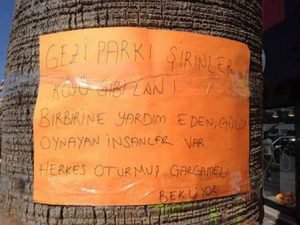 GEZİ PARKI ŞİRİNLER
KÖYÜ GİBİ LAN!
BİRBİRİNE YARDIM EDEN, GÜLÜP
OYNAYAN İNSANLAR VAR
HERKES OTURMUŞ GARGAMELİ
BEKLİYOR